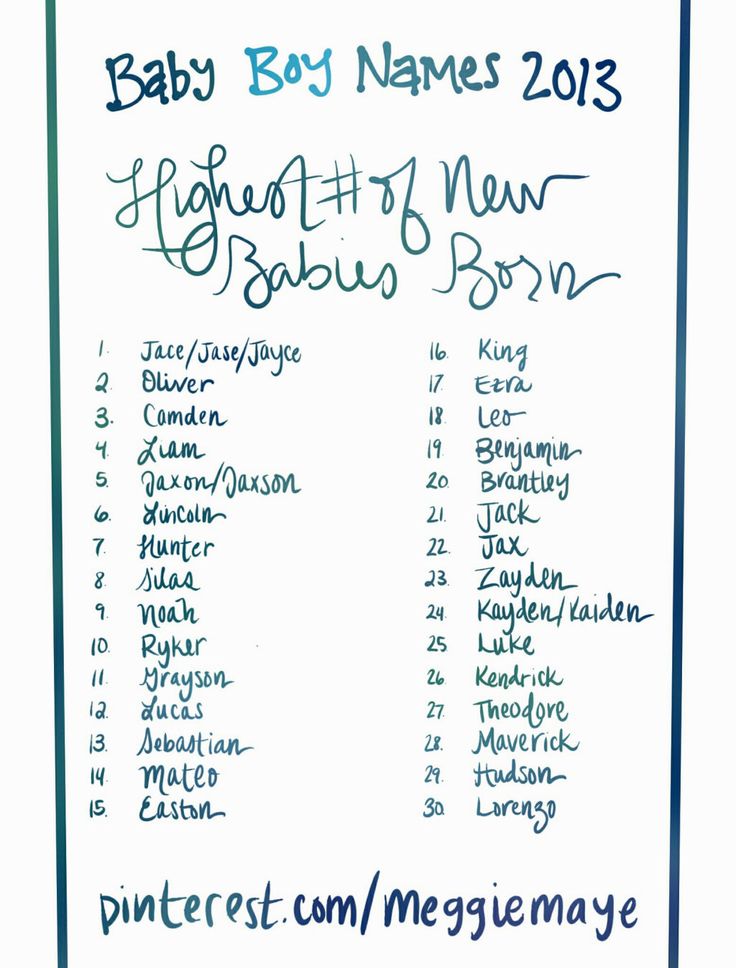 Baby Boy Names 2013
Highest # of New
Babies Born
1. Jace/Jase/Jayce
2. Oliver
3. Camden
4. Liam
5. Jaxon/Jaxson
6. Lincoln
7. Hunter
8. Silas
9. Noah
10. Ryker
11. Grayson
12. Lucas
13. Sebastian
14. Mateo
15. Easton
16. King
17. Ezra
18. Leo
19. Benjamin
20. Brantley
21. Jack
22. Jax
23. Zayden
24. Kayden/Kaiden
25 Luke
26. Kendrick
27. Theodore
28. Maverick
29. Hudson
30. Lorenzo
pinterest.com/meggiemaye